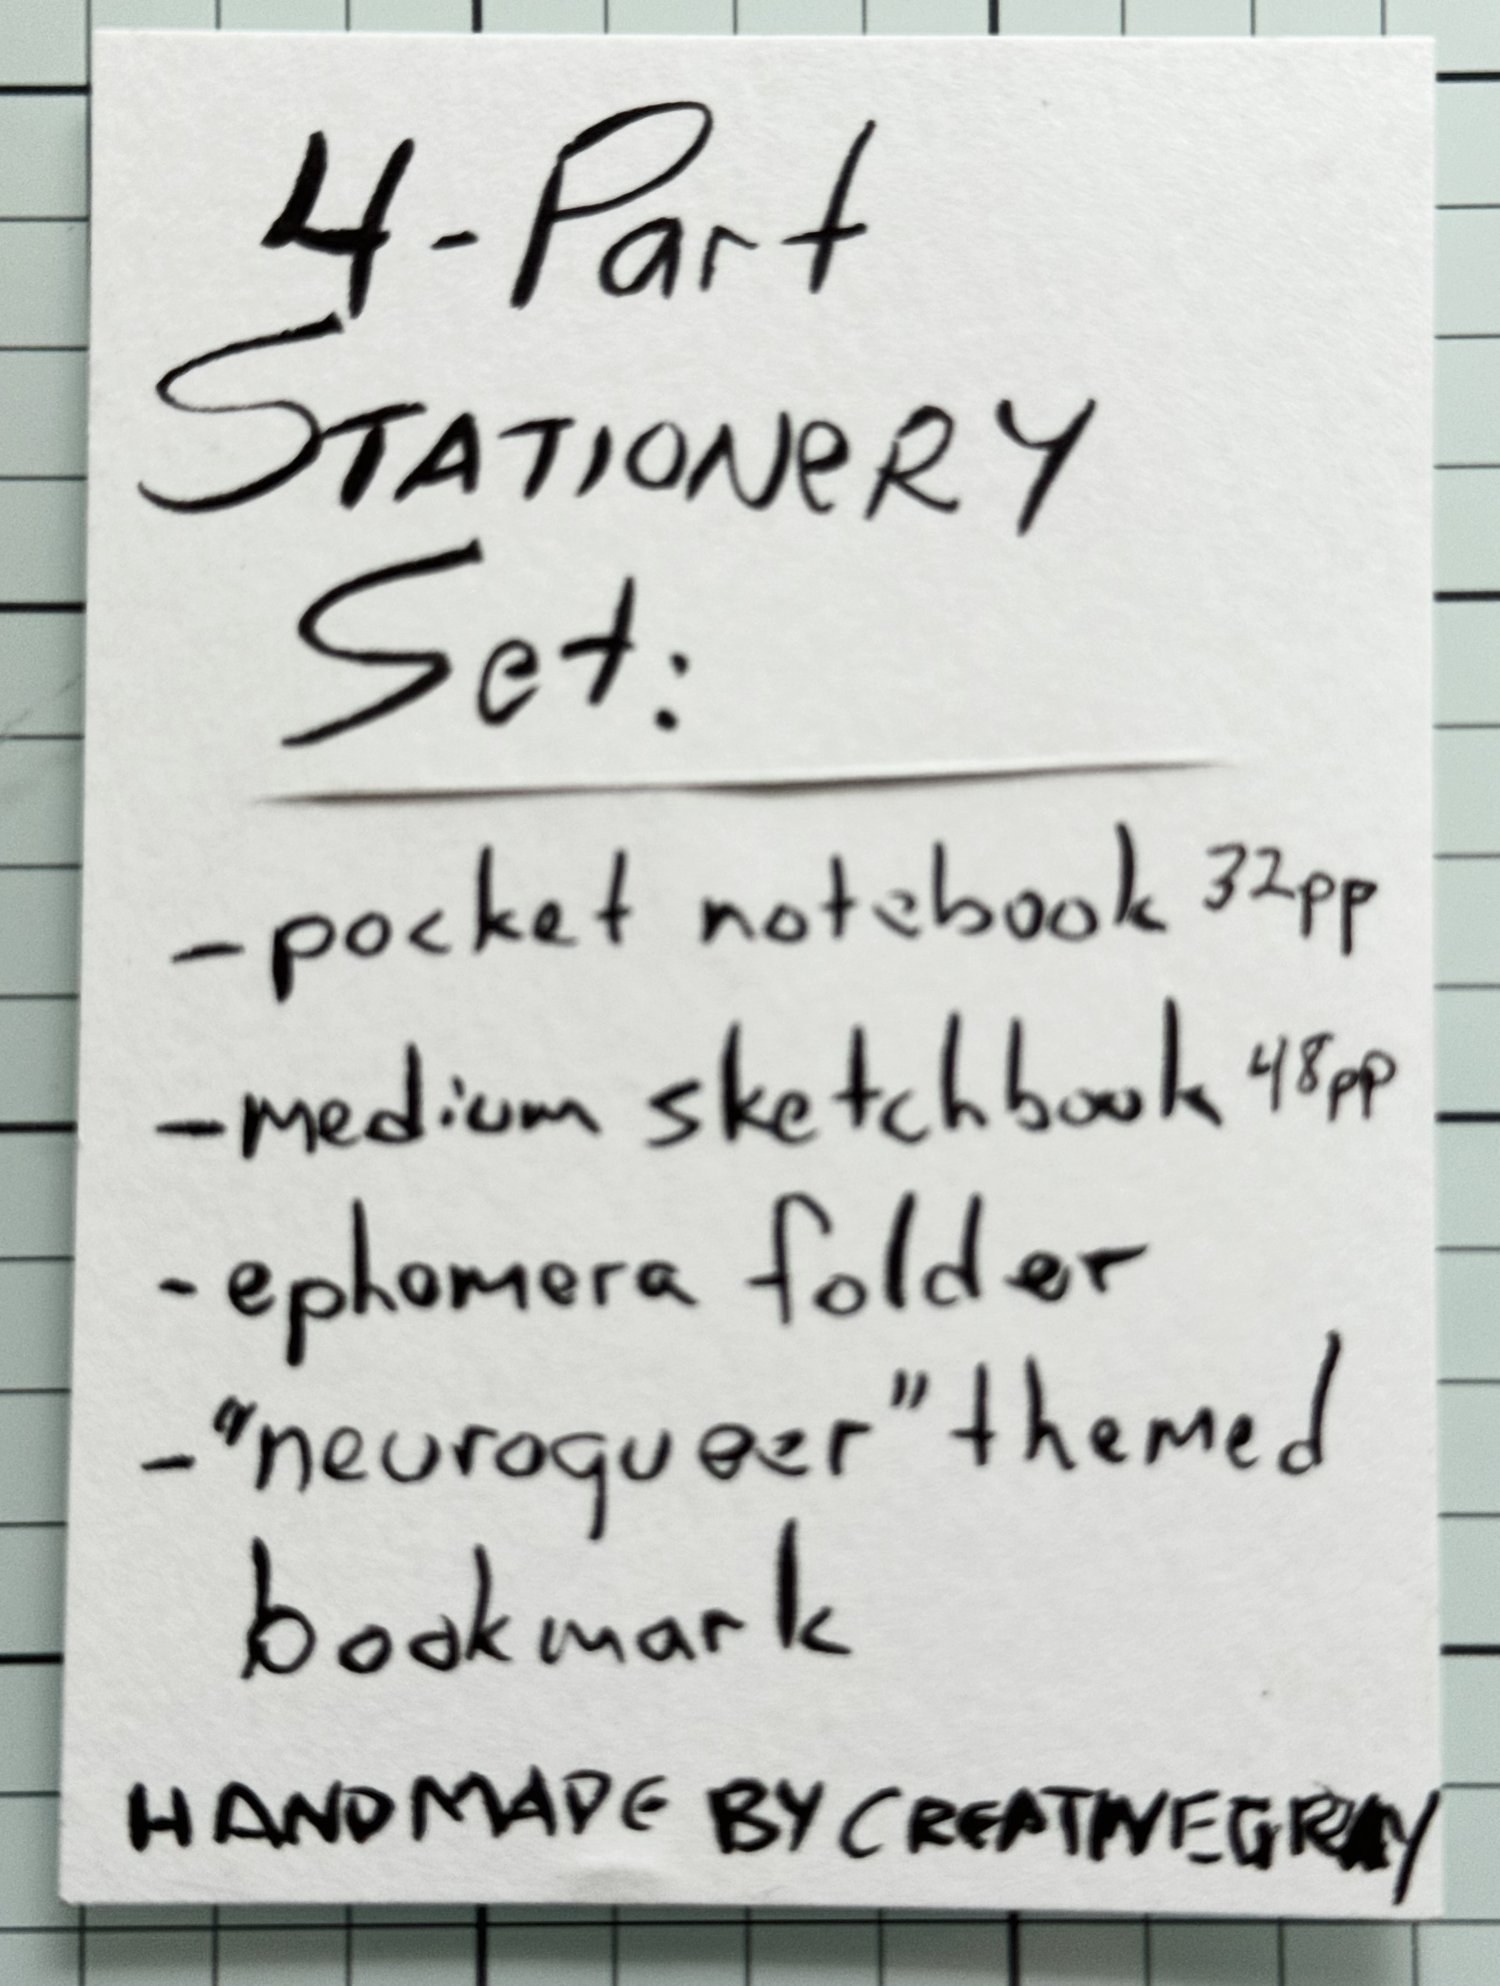 4-Part
STATIONeRY
Set:
- pocket notebook 32pp
- medium sketchbook 48pp
- ephemera folder
- "neuroqueer" themed
bookmark
HANDMADE BY CREATIVEGRAY